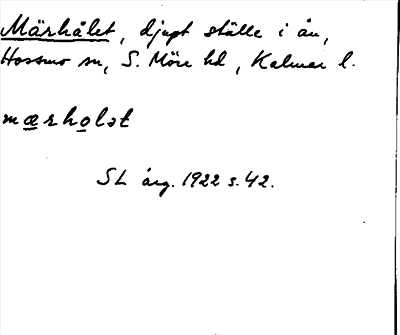 Märhålet, djupt ställe i ån,
Hossmo sn, S. Möre hd, Kalmar l.
mærholət
SL årg. 1922 s. 42.